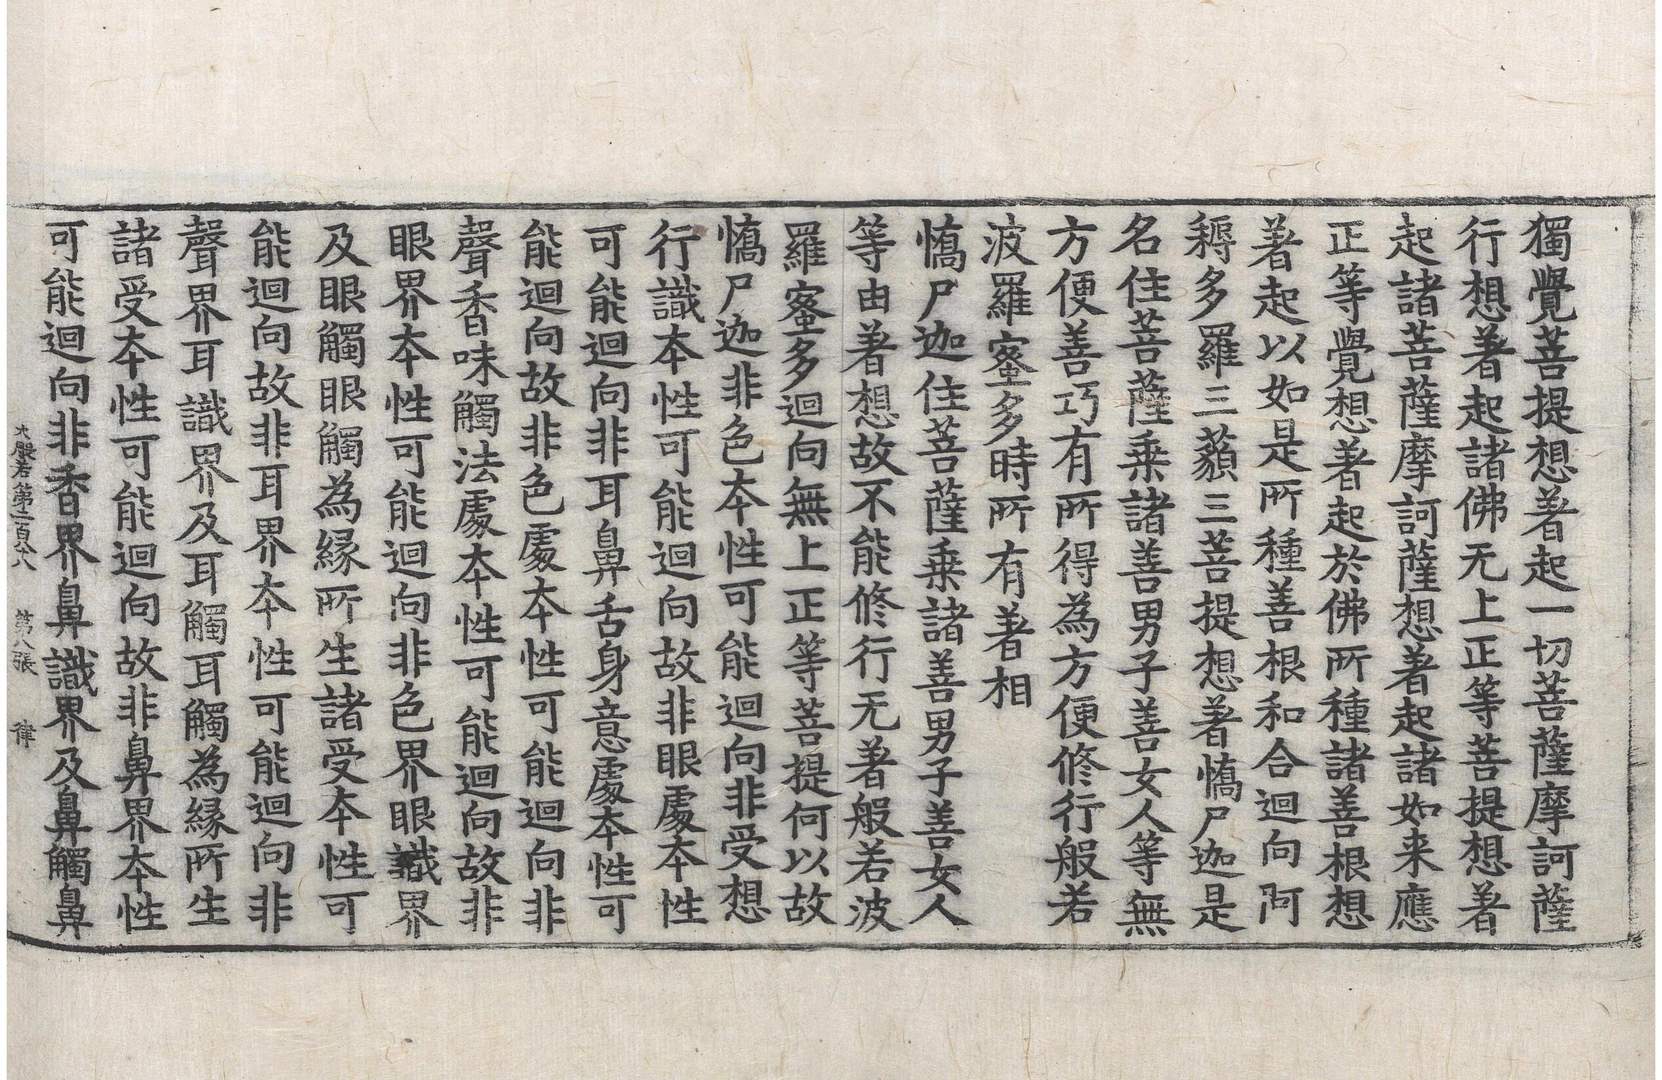 獨覺菩提想著起一切菩薩摩訶薩
行想著起諸佛无上正等菩提想著
起諸菩薩摩訶薩想著起諸如来應
正等覺想著起於佛所種諸善根想
著起以如是所種善根和合迴向阿
耨多羅三藐三菩提想著憍尸迦是
名住菩薩乗諸善男子善女人等無
方便善巧有所得為方便修行般若
波羅蜜多時所有著相
憍尸迦住菩薩乗諸善男子善女人
等由著想故不能修行无著般若波
羅蜜多迴向無上正等菩提何以故
憍尸迦非色本性可能迴向非受想
行識本性可能迴向故非眼處本性
可能迴向非耳鼻舌身意處本性可
能迴向故非色處本性可能迴向非
聲香味觸法處本性可能迴向故非
眼界本性可能迴向非色界眼識界
及眼觸眼觸為緣所生諸受本性可
能迴向故非耳界本性可能迴向非
聲界耳識界及耳觸耳觸為緣所生
諸受本性可能迴向故非鼻界本性
可能迴向非香界鼻識界及鼻觸鼻
大般若第一百八八 第八張 律